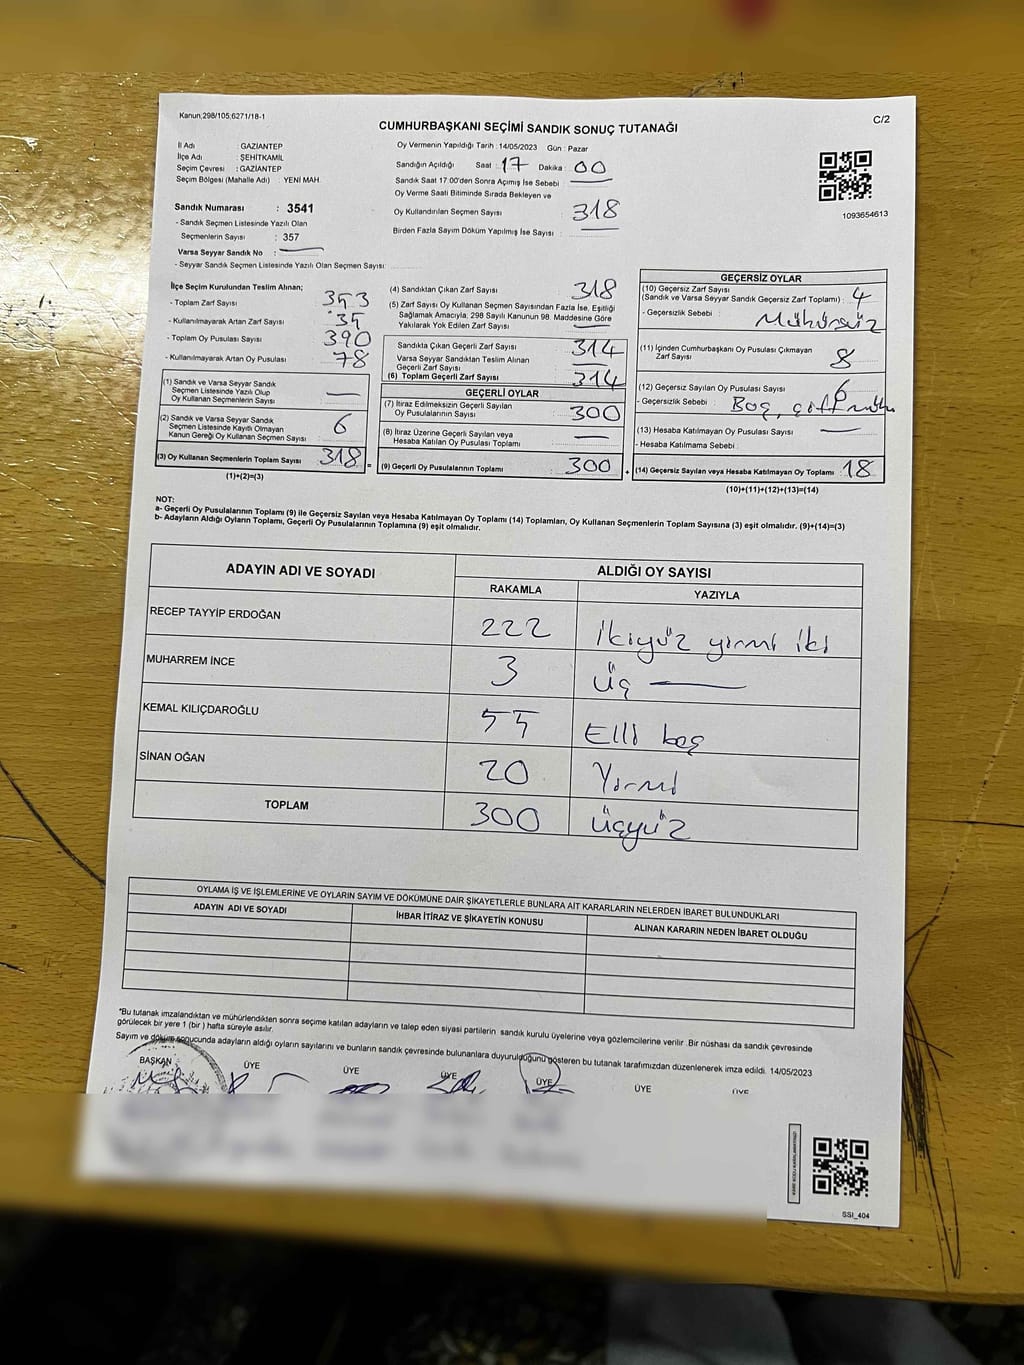 Kanun,298/105,6271/18-1
C/2
CUMHURBAŞKANI SEÇİMİ SANDIK SONUÇ TUTANAĞI
İl Adı : GAZİANTEP
İlçe Adı : ŞEHİTKAMİL
Seçim Çevresi : GAZİANTEP
Seçim Bölgesi (Mahalle Adı) : YENİ MAH.
Sandık Numarası : 3541
- Sandık Seçmen Listesinde Yazılı Olan
Seçmenlerin Sayısı : 357
Varsa Seyyar Sandık No :
- Seyyar Sandık Seçmen Listesinde Yazılı Olan Seçmen Sayısı:
Oy Vermenin Yapıldığı Tarih : 14/05/2023 Gün : Pazar
Sandığın Açıldığı Saat : 17 Dakika : 00
Sandık Saat 17:00'den Sonra Açımış İse Sebebi
Oy Verme Saati Bitiminde Sırada Bekleyen ve
Oy Kullandırılan Seçmen Sayısı : 318
Birden Fazla Sayım Döküm Yapılmış İse Sayısı :
1093654613
İlçe Seçim Kurulundan Teslim Alınan;
- Toplam Zarf Sayısı 353
- Kullanılmayarak Artan Zarf Sayısı 35
- Toplam Oy Pusulası Sayısı 390
- Kullanılmayarak Artan Oy Pusulası 78
(1) Sandık ve Varsa Seyyar Sandık
Seçmen Listesinde Yazılı Olup
Oy Kullanan Seçmenlerin Sayısı —
(2) Sandık ve Varsa Seyyar Sandık
Seçmen Listesinde Kayıtlı Olmayan
Kanun Gereği Oy Kullanan Seçmen Sayısı 6
(3) Oy Kullanan Seçmenlerin Toplam Sayısı 318 =
(1)+(2)=(3)
(4) Sandıktan Çıkan Zarf Sayısı 318
(5) Zarf Sayısı Oy Kullanan Seçmen Sayısından Fazla İse, Eşitliği
Sağlamak Amacıyla, 298 Sayılı Kanunun 98. Maddesine Göre
Yakılarak Yok Edilen Zarf Sayısı —
Sandıkta Çıkan Geçerli Zarf Sayısı 314
Varsa Seyyar Sandıktan Teslim Alınan
Geçerli Zarf Sayısı
(6) Toplam Geçerli Zarf Sayısı 314
GEÇERLİ OYLAR
(7) İtiraz Edilmeksizin Geçerli Sayılan
Oy Pusulalarının Sayısı 300
(8) İtiraz Üzerine Geçerli Sayılan veya
Hesaba Katılan Oy Pusulası Toplamı —
(9) Geçerli Oy Pusulalarının Toplamı 300 +
GEÇERSİZ OYLAR
(10) Geçersiz Zarf Sayısı
(Sandık ve Varsa Seyyar Sandık Geçersiz Zarf Toplamı) : 4
- Geçersizlik Sebebi : Mühürsüz
(11) İçinden Cumhurbaşkanı Oy Pusulası Çıkmayan
Zarf Sayısı 8
(12) Geçersiz Sayılan Oy Pusulası Sayısı 6
- Geçersizlik Sebebi : Boş, çift mühür
(13) Hesaba Katılmayan Oy Pusulası Sayısı —
- Hesaba Katılmama Sebebi :
(14) Geçersiz Sayılan veya Hesaba Katılmayan Oy Toplamı 18
(10)+(11)+(12)+(13)=(14)
NOT:
a- Geçerli Oy Pusulalarının Toplamı (9) ile Geçersiz Sayılan veya Hesaba Katılmayan Oy Toplamı (14) Toplamları, Oy Kullanan Seçmenlerin Toplam Sayısına (3) eşit olmalıdır. (9)+(14)=(3)
b- Adayların Aldığı Oyların Toplamı, Geçerli Oy Pusulalarının Toplamına (9) eşit olmalıdır.
ADAYIN ADI VE SOYADI
ALDIĞI OY SAYISI
RAKAMLA YAZIYLA
RECEP TAYYİP ERDOĞAN 222 İkiyüz yirmi iki
MUHARREM İNCE 3 Üç —
KEMAL KILIÇDAROĞLU 55 Elli beş
SİNAN OĞAN 20 Yirmi
TOPLAM 300 Üçyüz
OYLAMA İŞ VE İŞLEMLERİNE VE OYLARIN SAYIM VE DÖKÜMÜNE DAİR ŞİKAYETLERLE BUNLARA AİT KARARLARIN NELERDEN İBARET BULUNDUKLARI
ADAYIN ADI VE SOYADI İHBAR İTİRAZ VE ŞİKAYETİN KONUSU ALINAN KARARIN NEDEN İBARET OLDUĞU
*Bu tutanak imzalandıktan ve mühürlendikten sonra seçime katılan adayların ve talep eden siyasi partilerin sandık kurulu üyelerine veya gözlemcilerine verilir .Bir nüshası da sandık çevresinde
görülecek bir yere 1 (bir ) hafta süreyle asılır.
Sayım ve döküm sonucunda adayların aldığı oyların sayılarını ve bunların sandık çevresinde bulunanlara duyurulduğunu gösteren bu tutanak tarafımızdan düzenlenerek imza edildi. 14/05/2023
BAŞKAN ÜYE ÜYE ÜYE ÜYE ÜYE ÜYE
SSI_404